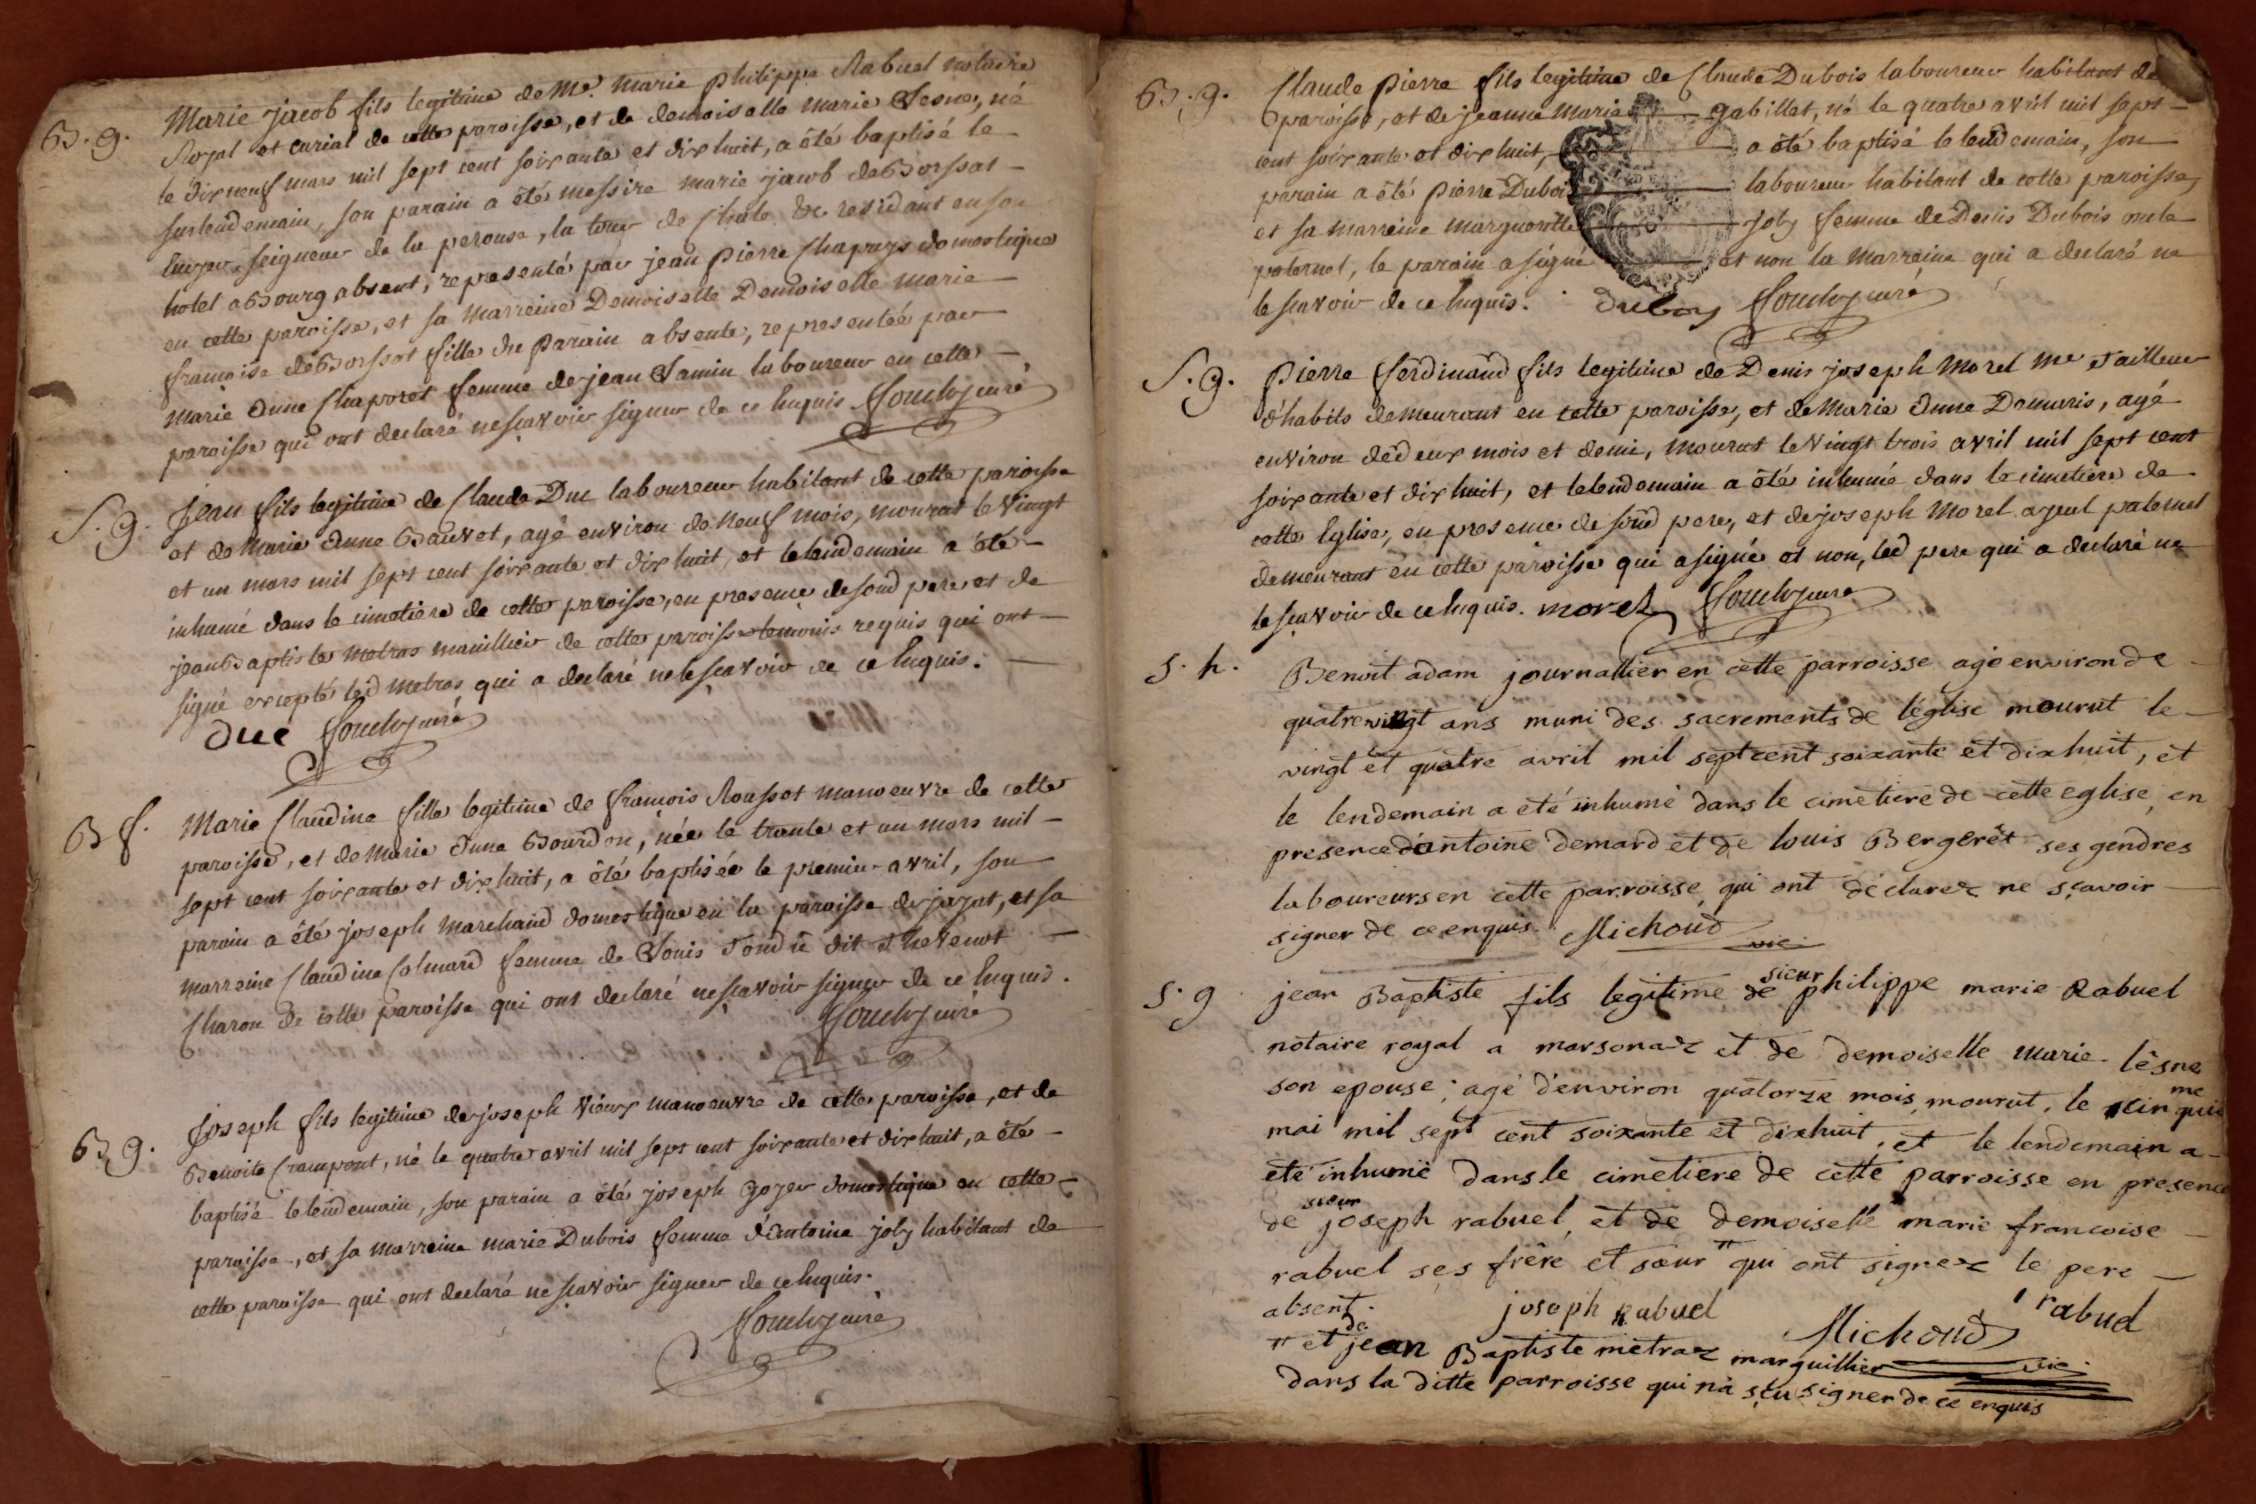 B. g. Marie jacob fils legitime de Me. Marie Philippe Rabuel notaire
Royal et curial de cette paroisse, et de demoiselle Marie Lesne, né
le dix neuf mars mil sept cent soixante et dix huit, a été baptisé le
surlendemain, son parain a été messire Marie jacob de Borssat
Ecuyer, seigneur de la perouse, la tour de Chale &c residant en son
hotel a Bourg absent, representé par jean Pierre Chapuys domestique
en cette paroisse, et sa marreine Demoiselle Demoiselle Marie
francoise de Borssat fille du Parain absente, representée par
Marie Anne Chaporet femme de jean Jamin laboureur en cette
paroisse qui ont declaré ne sçavoir signer de ce Enquis curé
S. g. Jean fils legitime de Claude Duc laboureur habitant de cette paroisse
et de Marie Anne Bauvet, agé environ de neuf mois, mourut le Vingt
et un mars mil sept cent soixante et dix huit, et le lendemain a été
inhumé dans le cimetiere de cette paroisse, en presence de soud pere et de
jean Baptiste Metras manillier de cette paroisse temoins requis qui ont
signé excepté led Metras qui a declaré ne le sçavoir de ce Enquis.
Duc curé
B f. Marie Claudine fille legitime de françois Rousset manoeuvre de cette
paroisse, et de Marie Anne Bourdon, née le trente et un mars mil
sept cent soixante et dix huit, a été baptisée le premier avril, son
parain a été joseph Marchand domestique en la paroisse de jayat, et sa
marreine Claudine Colmard femme de Louis Tondu dit Thevenot
Charon de cette paroisse qui ont declaré ne sçavoir signer de ce Enquis.
curé
B g. Joseph fils legitime de joseph Vieux manoeuvre de cette paroisse, et de
Benoite Crampont, né le quatre avril mil sept cent soixante et dix huit, a été
baptisé le lendemain, son parain a été joseph Goyer domestique en cette
paroisse, et sa marreine Marie Dubois femme d'Antoine joly habitant de
cette paroisse qui ont declaré ne sçavoir signer de ce Enquis.
curé
B. g. Claude Pierre fils legitime de Claude Dubois laboureur habitant de
paroisse, et de jeanne Marie Gabillet, né le quatre avril mil sept
cent soixante et dix huit, a été baptisé le lendemain, son
parain a été Pierre Dubois laboureur habitant de cette paroisse,
et sa marreine Margueritte Joly femme de Denis Dubois oncle
paternel, le parain a signé et non la marraine qui a declaré ne
le sçavoir de ce Enquis. Duboy curé
S. g. Pierre ferdinand fils legitime de Denis joseph Morel Me Tailleur
d'habits demeurant en cette paroisse, et de Marie Anne Domaris, agé
environ de deux mois et demi, mourut le Vingt trois avril mil sept cent
soixante et dix huit, et le lendemain a été inhumé dans le cimetiere de
cette Eglise, en presence de soud pere, et de joseph Morel ayeul paternel
demeurant en cette paroisse qui a signé et non, led pere qui a declaré ne
le sçavoir de ce Enquis. morel curé
s. h. Benoit adam journallier en cette parroisse agé environ de
quatrevingt ans muni des sacrements de l'église mourut le
vingt et quatre avril mil sept cent soixante et dixhuit, et
le lendemain a eté inhumé dans le cimetiere de cette eglise, en
presence d'antoine demard et de louis Bergeret ses gendres
laboureurs en cette parroisse qui ont déclarez ne sçavoir
signer de ce enquis. Michoud
vic.
s. g jean Baptiste fils legitime de sieur philippe marie Rabuel
notaire royal a marsonaz et de demoiselle marie lèsne
son epouse, agé d'environ quatorze mois, mourut, le cinquieme
mai mil sept cent soixante et dixhuit, et le lendemain a
eté inhumé dans le cimetiere de cette parroisse en presence
de sieur joseph rabuel, et de demoiselle marie francoise
rabuel ses frére et sœur " qui ont signez le pere
absent. joseph Rabuel rabuel
" et de jean Baptiste metraz marguillier Michoud vic.
dans la ditte parroisse qui n'a sçu signer de ce enquis